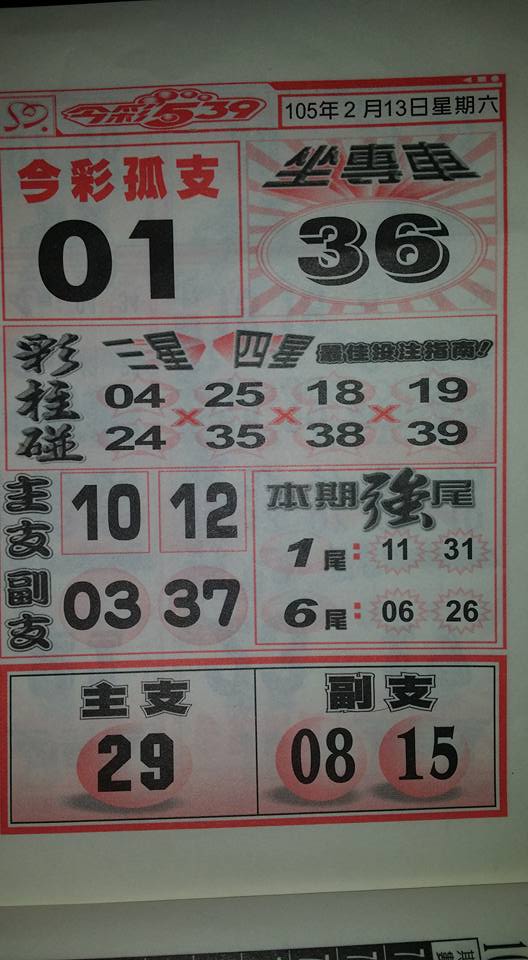 今彩539
105年2月13日星期六
今彩孤支
01
36
彩柱碰
三星 四星 最佳投注指南!
04 25 18 19
× × ×
24 35 38 39
主支 10 12
副支 03 37
本期強尾
1尾: 11 31
6尾: 06 26
主支
29
副支
08 15